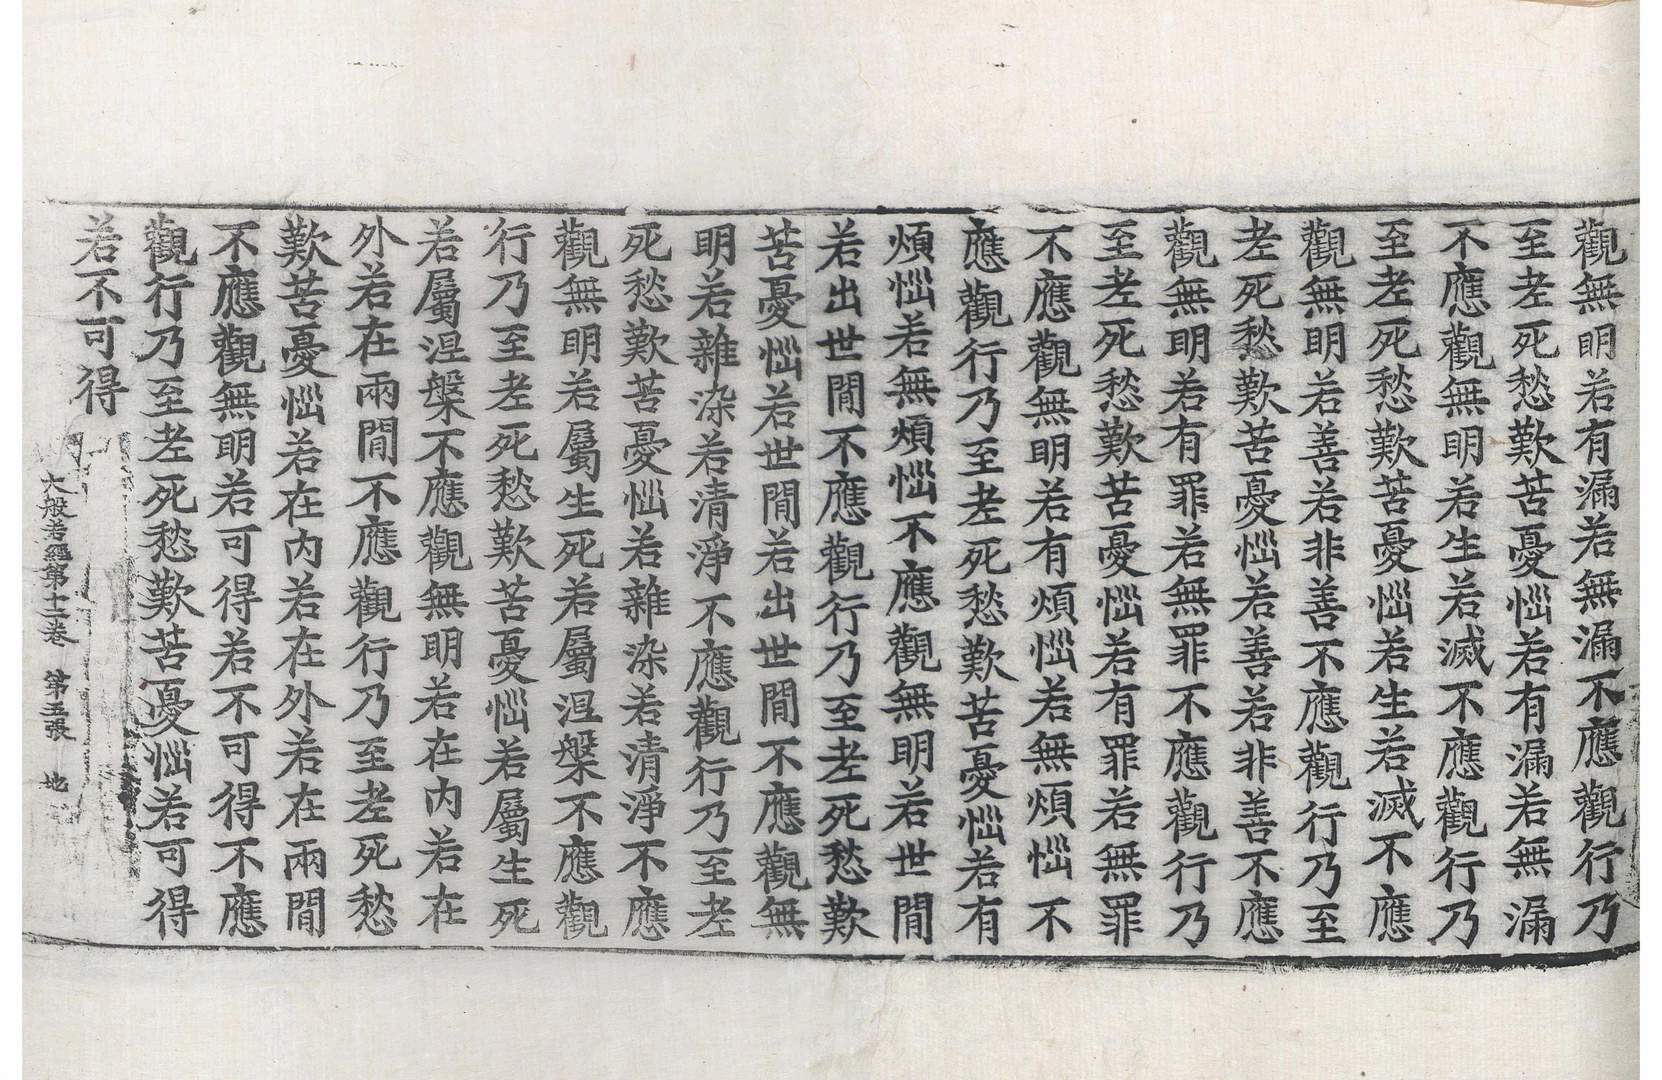 觀無明若有漏若無漏不應觀行乃
至老死愁歎苦憂惱若有漏若無漏
不應觀無明若生若滅不應觀行乃
至老死愁歎苦憂惱若生若滅不應
觀無明若善若非善不應觀行乃至
老死愁歎苦憂惱若善若非善不應
觀無明若有罪若無罪不應觀行乃
至老死愁歎苦憂惱若有罪若無罪
不應觀無明若有煩惱若無煩惱不
應觀行乃至老死愁歎苦憂惱若有
煩惱若無煩惱不應觀無明若世閒
若出世閒不應觀行乃至老死愁歎
苦憂惱若世閒若出世閒不應觀無
明若雜染若清淨不應觀行乃至老
死愁歎苦憂惱若雜染若清淨不應
觀無明若屬生死若屬涅槃不應觀
行乃至老死愁歎苦憂惱若屬生死
若屬涅槃不應觀無明若在內若在
外若在兩閒不應觀行乃至老死愁
歎苦憂惱若在內若在外若在兩閒
不應觀無明若可得若不可得不應
觀行乃至老死愁歎苦憂惱若可得
若不可得
大般若經第十二卷 第五張 地